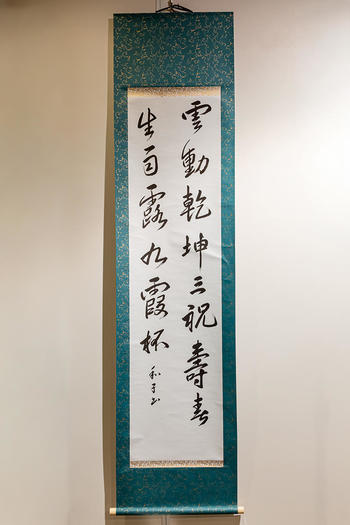 雲動乾坤三祝壽春
生雨露九霞杯
和子书